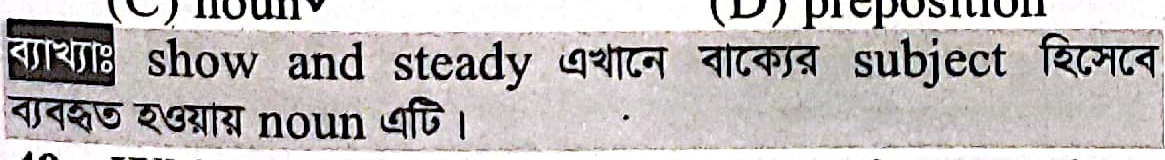 (C) noun✓ (D) preposition
ব্যাখ্যাঃ show and steady এখানে বাক্যের subject হিসেবে
ব্যবহৃত হওয়ায় noun এটি।